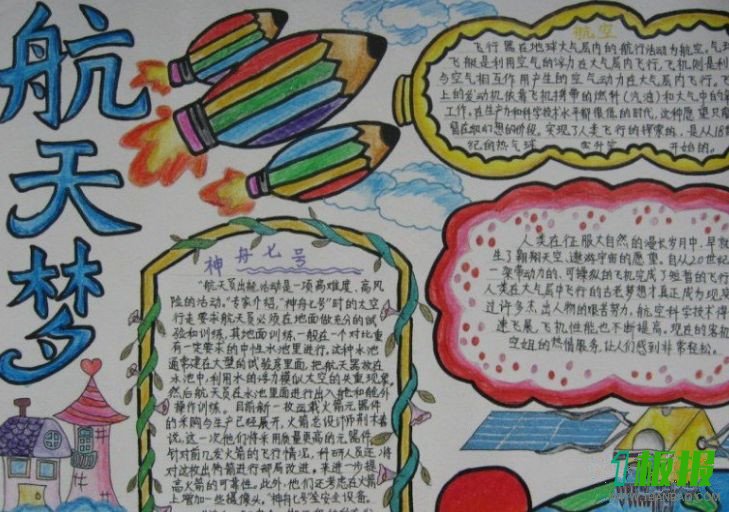 航天梦
航空
飞行器在地球大气层内的航行活动为航空。气球
飞艇是利用空气的浮力在大气层内飞行,飞机则是利
与空气相互作用产生的空气动力在大气层内飞行。飞
上的发动机依靠飞机携带的燃料(汽油)和大气中的
工作。在生产力和科学技术水平都很低的时代,这种愿望只
留在幻想的阶段。实现了人类飞行的探索的,是从18
纪的热气球 升空 开始的。
人类在征服大自然的漫长岁月中,早就
生了翱翔天空、遨游宇宙的愿望。自从20世纪
一架带动力的、可操纵的飞机完成了短暂的飞行
人类在大气层中飞行的古老梦想才真正成为现实
过许多杰出人物的艰苦努力,航空科学技术得
速飞展,飞机性能也不断提高。现在的客机
空姐的热情服务,让人们感到非常轻松。
神舟七号
“航天员出舱活动是一项高难度、高风
险的活动。”专家介绍,“神舟七号”时的太空
行走要求航天员必须在地面做充分的试
验和训练。其地面训练一般在一个对比重
有一定要求的中性水池里进行。这种水池
通常建在大型的试验室里面,把航天器放在
水池中,利用水的浮力模似太空的失重现象,
然后航天员在水池里面进行出入舱和舱外
操作训练。目前新一枚运载火箭元器件
的采购与生产已经展开。火箭总设计师荆木春
说,这一次他们将采用质量更高的元器件,
针对前几发火箭的飞行情况,科研人员还将
对这枚出俩箭进行部局改进,来进一步提
高火箭的可靠性。此外,他们还考虑在火箭
上增加一些摄像头。“神舟七号”签安全设备。
板报